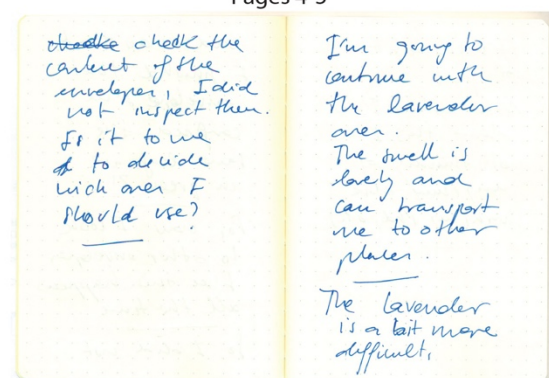 Pages 4-5
checke check the
content of the
envelopes, I did
not inspect them.
Is it to me
to decide
wich ones I
should use?
I'm going to
continue with
the lavender
ones.
The smell is
lovely and
can transport
me to other
places.
The lavender
is a bit more
difficult,